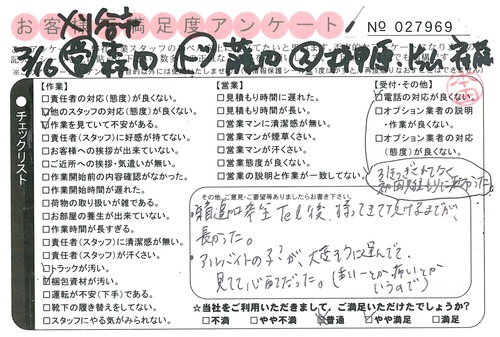 お客様満足度アンケート
№ 027969
7/16
チェックリスト
【作業】
□責任者の対応(態度)が良くない。
□他のスタッフの対応(態度)が良くない。
□作業を見ていて不安がある。
□責任者(スタッフ)に好感が持てない。
□お客様への挨拶が出来ていない。
□ご近所への挨拶・気遣いが無い。
□作業開始前の内容確認がなかった。
□作業開始時間が遅れた。
□荷物の取り扱いが雑である。
□お部屋の養生が出来ていない。
□作業時間が長すぎる。
□責任者(スタッフ)に清潔感が無い。
□責任者(スタッフ)が汗くさい。
□トラックが汚い。
□梱包資材が汚い。
□運転が不安(下手)である。
□靴下の履き替えをしてない。
□スタッフにやる気がみられない。
【営業】
□見積もり時間に遅れた。
□見積もり時間が長い。
□営業マンに清潔感が無い。
□営業マンが煙草くさい。
□営業マンが汗くさい。
□営業態度が良くない。
□営業の説明と作業が一致してない。
【受付・その他】
□電話の対応が良くない。
□オプション業者の説明
・作業が良くない。
□オプション業者の対応
(態度)が良くない。
その他、ご意見・ご要望等ありましたらお書き下さい。
・箱追加希望Tel後、持ってきて頂けるまでが、
長かった。
・アルバイトの子が、大変そうに運んでて、
見てて心配だった。(重いーとか痛いとか
いうので)
★当社をご利用いただきまして、ご満足いただけたでしょうか?
□不満 □やや不満 □普通 □やや満足 □満足